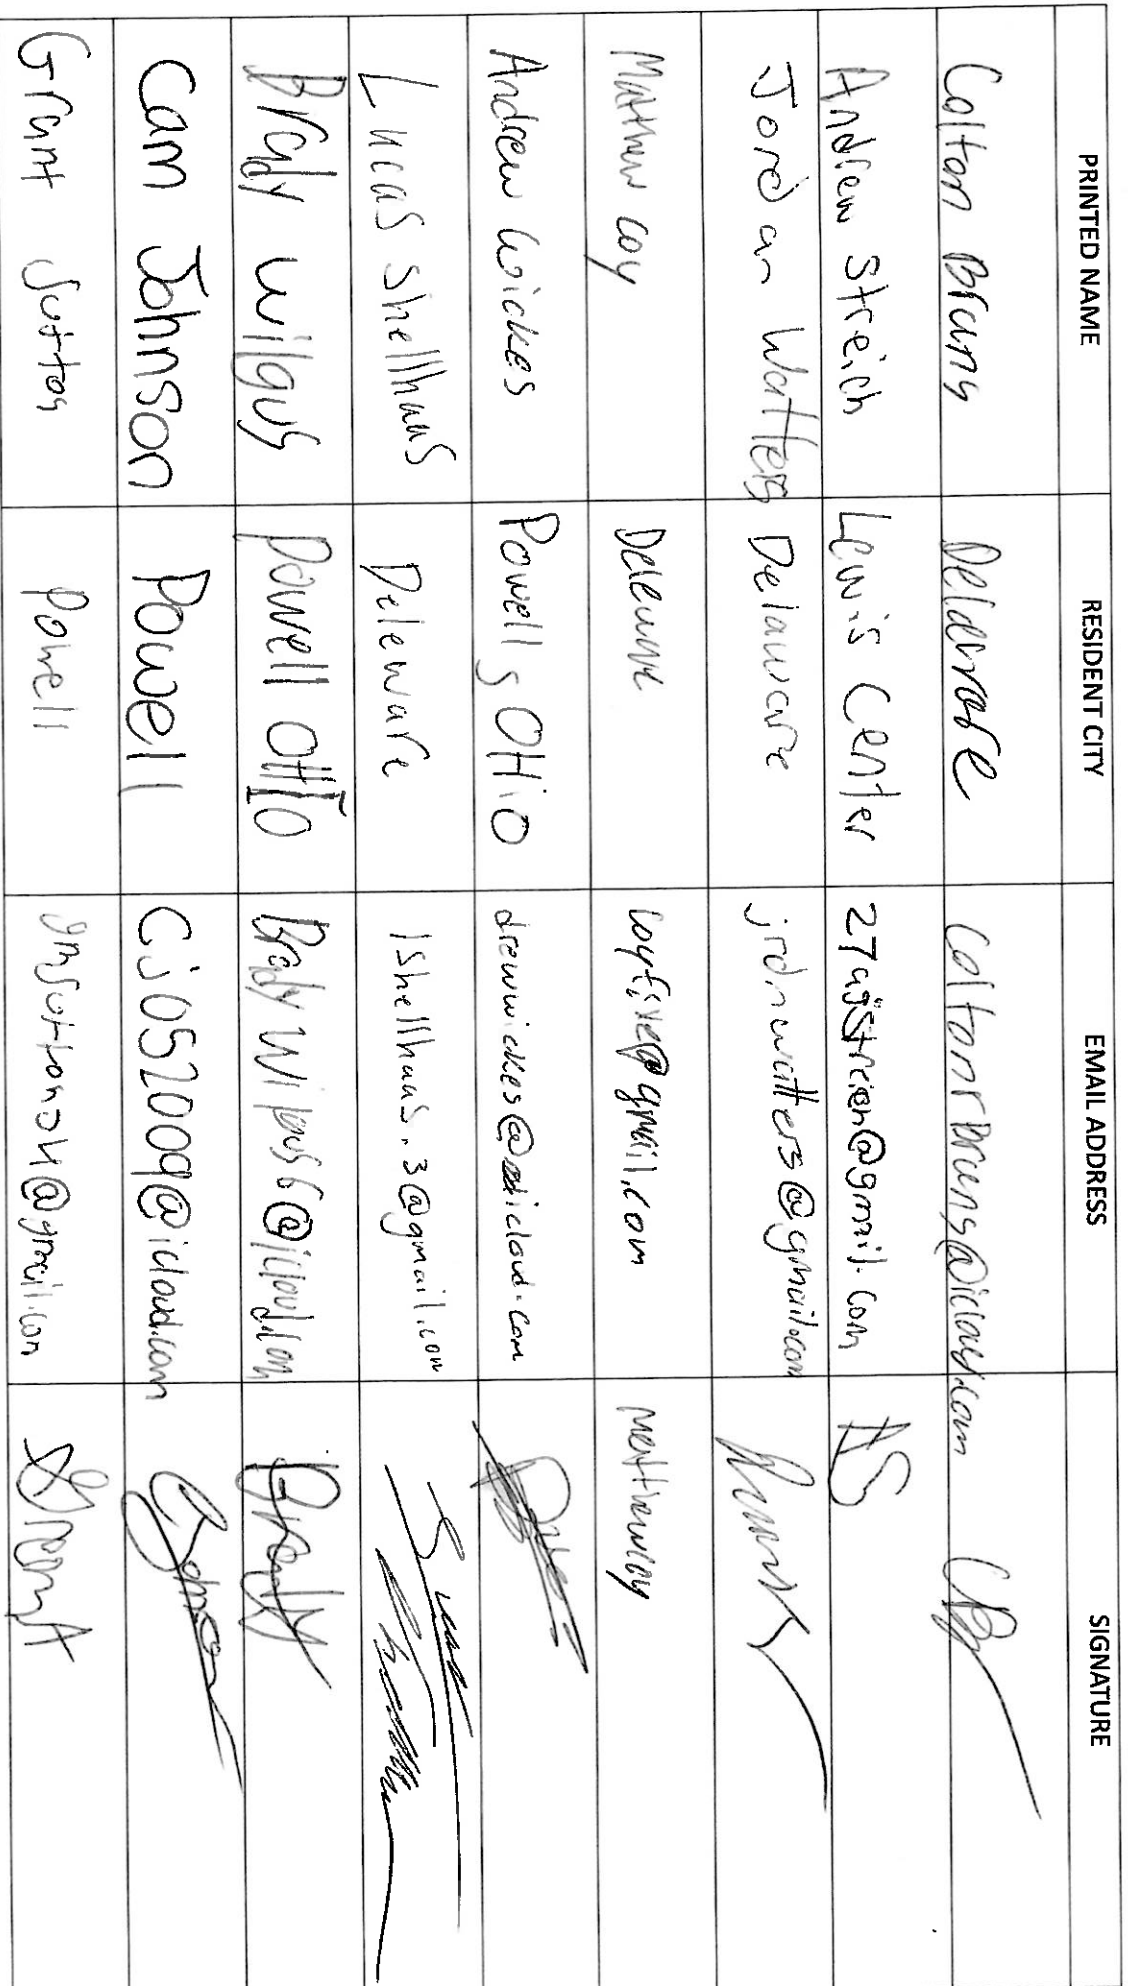 PRINTED NAME RESIDENT CITY EMAIL ADDRESS SIGNATURE
Colton Bruns Delaware Coltonrbruns@icloud.com CB
Andrew Streich Lewis Center 27ajstreich@gmail.com AS
Jordan Watters Delaware jrdnwatters@gmail.com
Matthew Coy Deleware coyfive@gmail.com Matthew Coy
Andrew Wickes Powell, OHiO drewwickes@icloud.com
Lucas Shellhaas Deleware lshellhaas.3@gmail.com
Brady Wilgus Powell OHIO BradyWilgus6@icloud.com Brady
Cam Johnson Powell CJ052009@icloud.com CJohnson
Grant Sutton Powell gmsutton24@gmail.com Grant